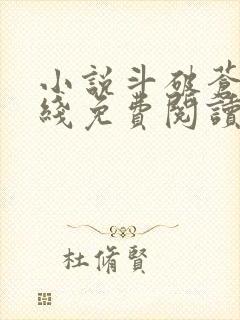 小説斗破蒼
綫免費閱讀
杜脩賢